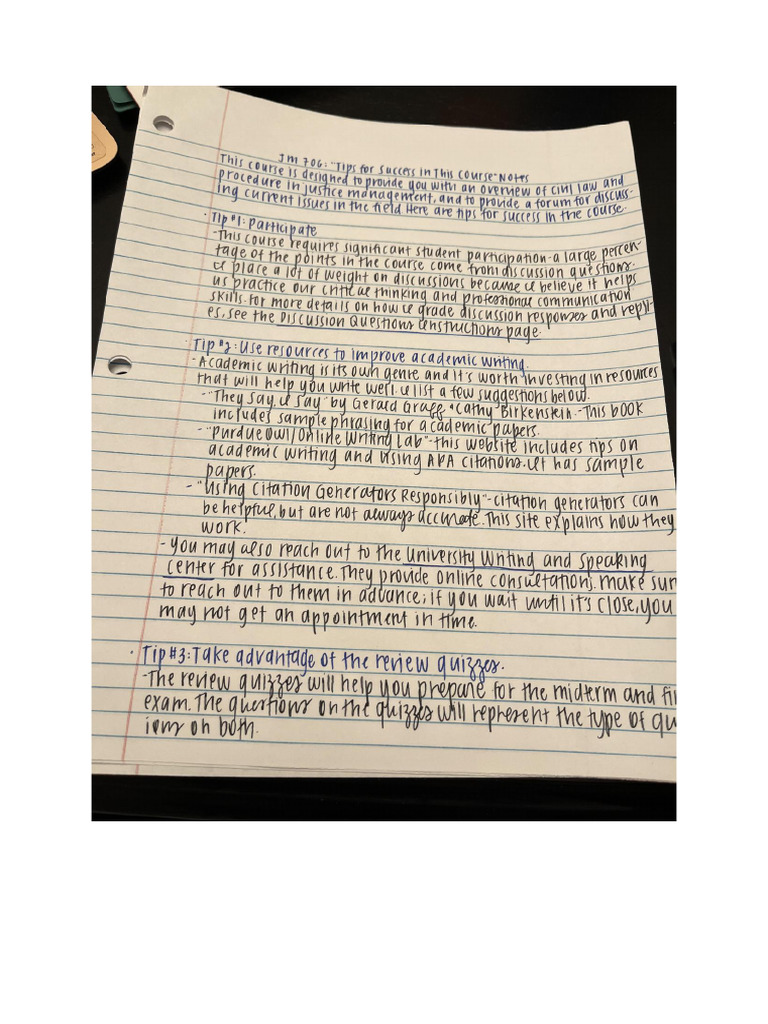 JM 706: "Tips for Success in This Course" Notes
This course is designed to provide you with an overview of civil law and
procedure in justice management, and to provide a forum for discuss-
ing current issues in the field. Here are tips for success in the course.
· Tip #1: Participate
-This course requires significant student participation-a large percen-
tage of the points in the course come from discussion questions.
I place a lot of weight on discussions because I believe it helps
us practice our critical thinking and professional communication
skills. For more details on how I grade discussion responses and repli-
es, see the Discussion Questions Instructions page.
· Tip #2: Use resources to improve academic writing.
-Academic writing is its own genre and it's worth investing in resources
that will help you write well. I list a few suggestions below.
-"They Say, I Say" by Gerard Graff & Cathy Birkenstein.-This book
includes sample phrasing for academic papers.
-"Purdue Owl/Online Writing Lab"-this website includes tips on
academic writing and using APA citations. It has sample
papers.
-"Using Citation Generators Responsibly"-citation generators can
be helpful, but are not always accurate. This site explains how they
work.
-You may also reach out to the University Writing and Speaking
Center for assistance. They provide online consultation). Make sur
to reach out to them in advance; if you wait until it's close, you
may not get an appointment in time.
· Tip #3: Take advantage of the review quizzes.
-The review quizzes will help you prepare for the midterm and fi
exam. The questions on the quizzes will represent the type of qu
ions on both.